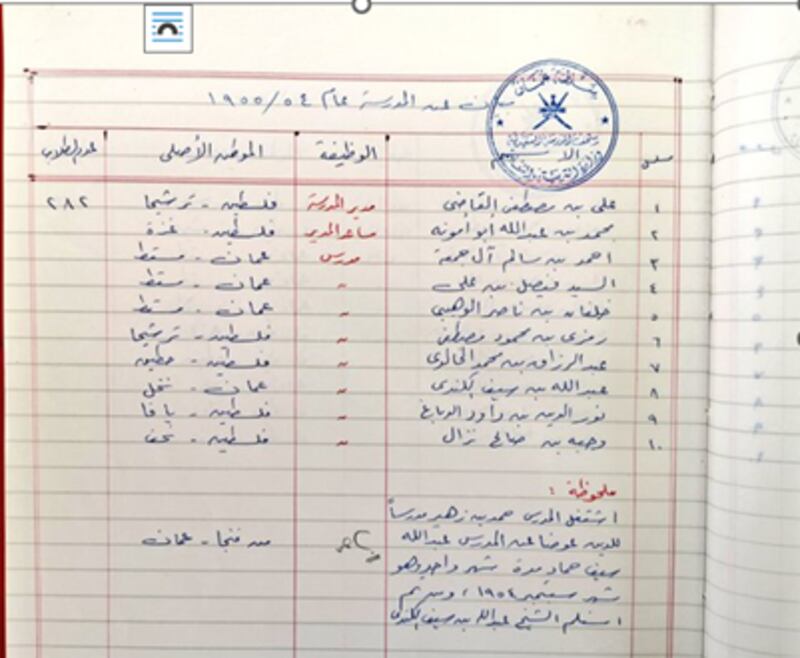 بيان عن المدرسة عام ١٩٥٥/٥٤
سلطنة عمان
وزارة التربية والتعليم
مسلسل الاسم الوظيفة الموطن الأصلي عدد الطلاب
١ علي بن مصطفى القاضي مدير المدرسة فلسطين - ترشيحا ٢٨٢
٢ محمد بن عبدالله أبو أمونه مساعد المدير فلسطين - غزة
٣ احمد بن سالم آل جمعة مدرس عمان - مسقط
٤ السيد فيصل بن علي " عمان - مسقط
٥ خلفان بن ناصر الوهيبي " عمان - مسقط
٦ رمزي بن محمود مصطفى " فلسطين - ترشيحا
٧ عبد الرزاق بن محمد الخالوي " فلسطين - حطين
٨ عبدالله بن سيف الكندي " عمان - نخل
٩ نور الدين بن داود الدباغ " فلسطين - يافا
١٠ وجيه بن صالح نزال " فلسطين -
ملحوظة :
اشتغل المدرس حمد بن زهير مدرساً
للدين عوضا عن المدرس عبدالله من فنجا - عمان
سيف حماد مدة شهر واحد وهو
شهر سبتمبر ١٩٥٤ ، ومن ثم
استلم الشيخ عبدالله بن سيف الكندي